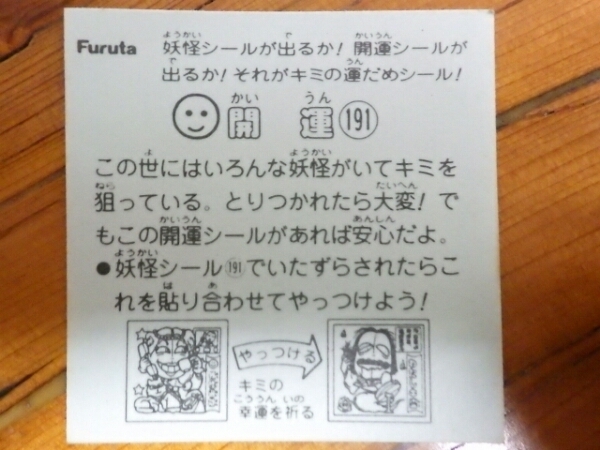 Furuta
妖怪シールが出るか！開運シールが
出るか！それがキミの運だめシール！
開 運 191
この世にはいろんな妖怪がいてキミを
狙っている。とりつかれたら大変！で
もこの開運シールがあれば安心だよ。
●妖怪シール191でいたずらされたらこ
れを貼り合わせてやっつけよう！
やっつける
キミの
幸運を祈る